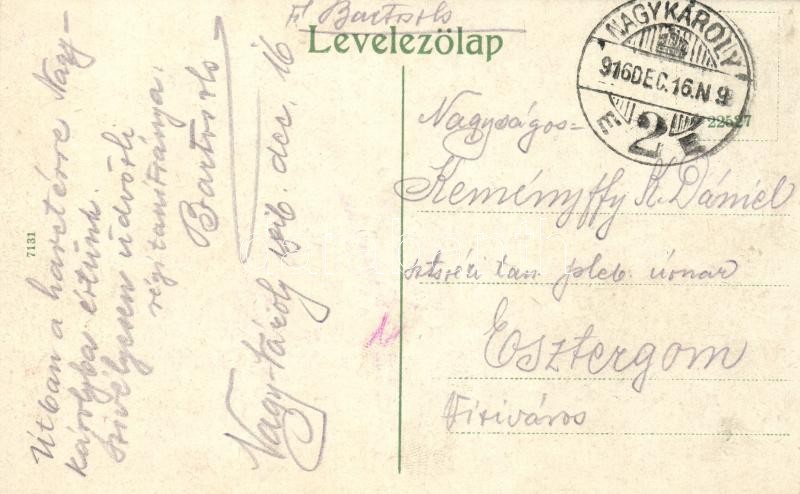 F. Bartsols
Levelezőlap
NAGYKÁROLY
916 DEC. 16. N 9
E 2 E
22527
7131
Útban a harctérre Nagy-
károlyba értünk.
Szívélyesen üdvözli
régi tanítványa,
Bartsols
Nagy-Károly 1916. dec. 16
Nagyságos
Keményffy K. Dániel
pleb. úrnak
Esztergom
Viziváros